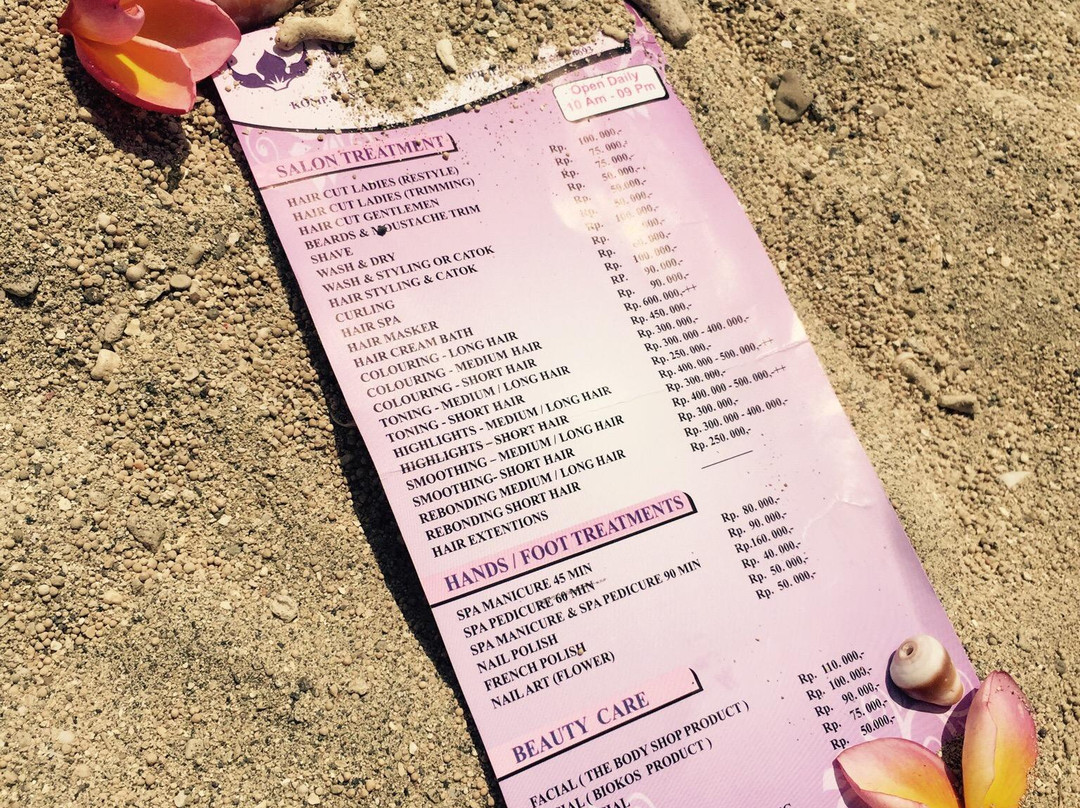 KOMP
Open Daily
10 Am - 09 Pm
SALON TREATMENT
HAIR CUT LADIES (RESTYLE)
HAIR CUT LADIES (TRIMMING)
HAIR CUT GENTLEMEN
BEARDS & MOUSTACHE TRIM
SHAVE
WASH & DRY
WASH & STYLING OR CATOK
HAIR STYLING & CATOK
CURLING
HAIR SPA
HAIR MASKER
HAIR CREAM BATH
COLOURING - LONG HAIR
COLOURING - MEDIUM HAIR
COLOURING - SHORT HAIR
TONING - MEDIUM / LONG HAIR
TONING - SHORT HAIR
HIGHLIGHTS - MEDIUM / LONG HAIR
HIGHLIGHTS – SHORT HAIR
SMOOTHING – MEDIUM / LONG HAIR
SMOOTHING- SHORT HAIR
REBONDING MEDIUM / LONG HAIR
REBONDING SHORT HAIR
HAIR EXTENTIONS
Rp. 100.000,-
Rp. 75.000,-
Rp. 75.000,-
Rp. 50.000,-
Rp. 50.000,-
Rp. 50.000,-
Rp. 100.000,-
Rp.
Rp. 100.000,-
RP. 90.000,-
Rp. 90.000,-
Rp. 600.000,-++
Rp. 450.000,-
Rp. 300.000,-
Rp. 300.000 - 400.000,-
Rp. 250.000,-
Rp. 400.000 - 500.000,-++
Rp. 300.000,-
Rp. 400.000 - 500.000,-++
Rp. 300.000,-
Rp. 300.000 - 400.000,-
Rp. 250.000,-
HANDS / FOOT TREATMENTS
SPA MANICURE 45 MIN
SPA PEDICURE 60 MIN
SPA MANICURE & SPA PEDICURE 90 MIN
NAIL POLISH
FRENCH POLISH
NAIL ART (FLOWER)
Rp. 80.000,-
Rp. 90.000,-
Rp.160.000,-
Rp. 40.000,-
Rp. 50.000,-
Rp. 50.000,-
BEAUTY CARE
FACIAL ( THE BODY SHOP PRODUCT )
( BIOKOS PRODUCT )
Rp. 110.000,-
Rp. 100.000,-
Rp. 90.000,-
Rp. 75.000,-
Rp. 50.000,-